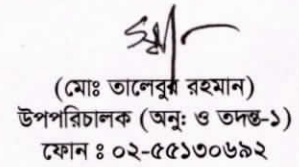 (মোঃ তালেবুর রহমান)
উপপরিচালক (অনুঃ ও তদন্ত-১)
ফোন ঃ ০২-৫৫১৩০৬৯২